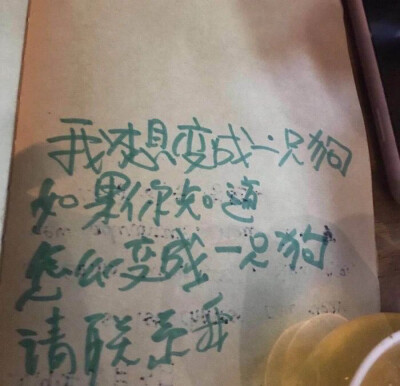 我想变成一只狗
如果你知道
怎么变成一只狗
请联系我